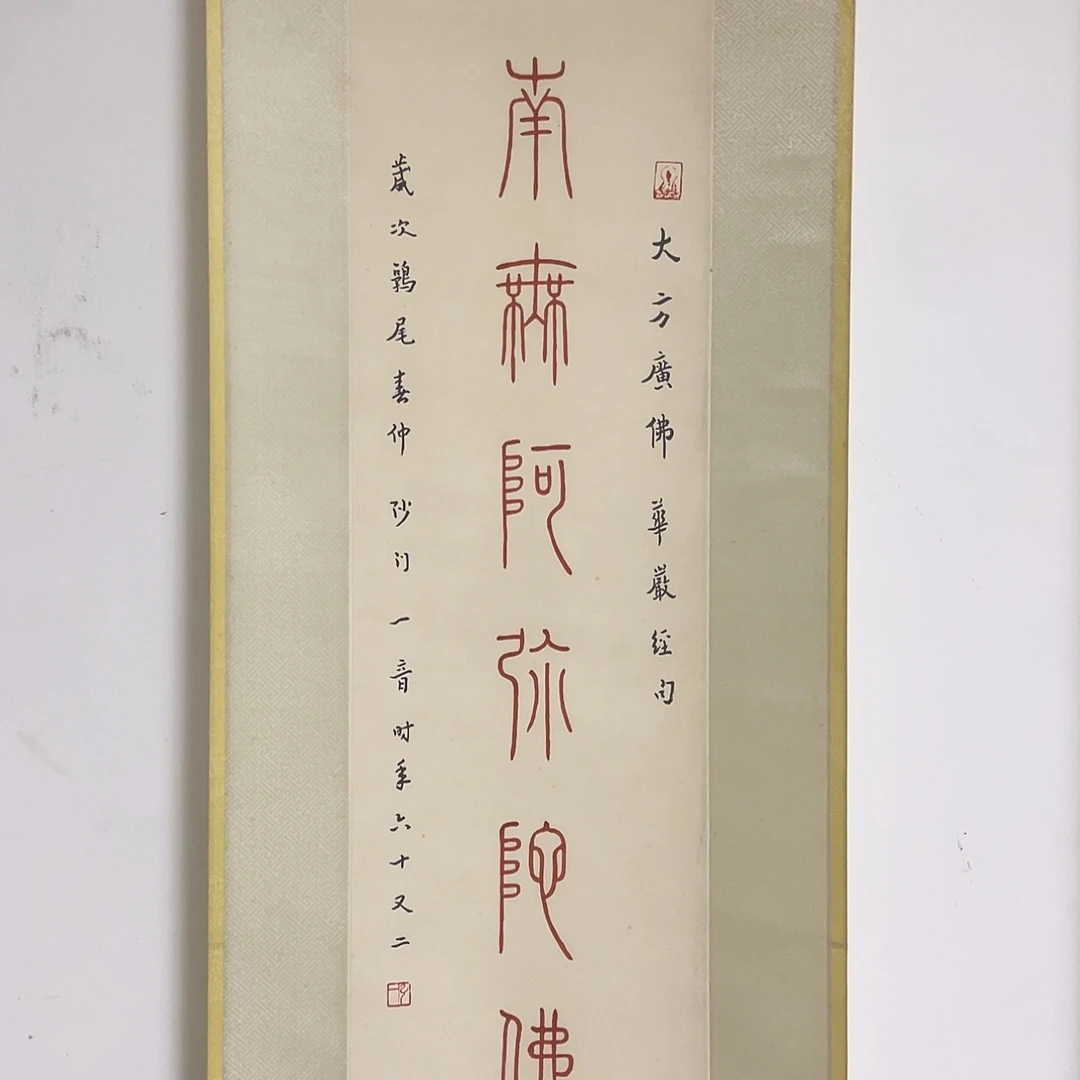 大方廣佛華嚴經句
南無阿弥陀佛
歲次鶉尾春仲沙门一音时年六十又二